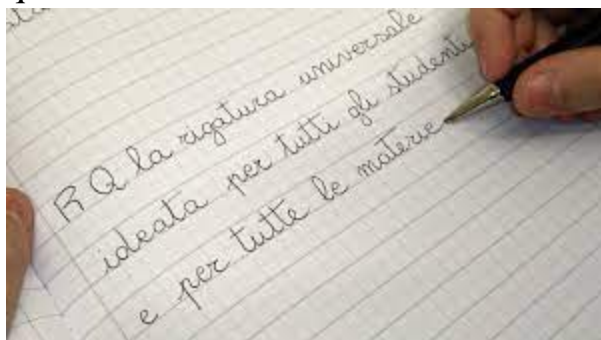 R Q la rigatura universale
ideata per tutti gli studenti
e per tutte le materie